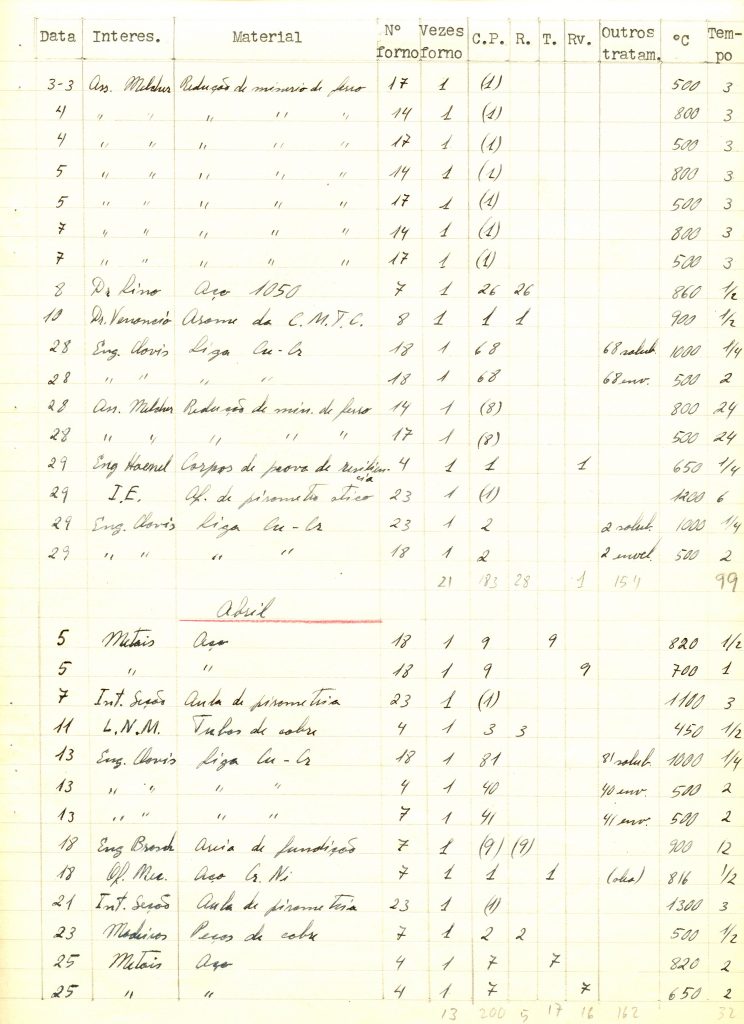 Data Interes. Material Nº forno Vezes forno C.P. R. T. Rv. Outros tratam. ºC Tempo
3-3 Ass. Melcher Redução de minerio de ferro 17 1 (1) 500 3
4 " " " " " 14 1 (1) 800 3
4 " " " " " 17 1 (1) 500 3
5 " " " " " 14 1 (1) 800 3
5 " " " " " 17 1 (1) 500 3
7 " " " " " 14 1 (1) 800 3
7 " " " " " 17 1 (1) 500 3
8 Dr Lino Aço 1050 7 1 26 26 860 1/2
19 Dr. Venancio Arame da C.M.T.C. 8 1 1 1 900 1/2
28 Eng. Clovis Liga Cu-Cr 18 1 68 68 solub. 1000 1/4
28 " " " " 18 1 68 68 env. 500 2
28 Ass. Melcher Redução de min. de ferro 14 1 (8) 800 24
28 " " " " " 17 1 (8) 500 24
29 Eng Haenel Corpos de prova de resiliencia 4 1 1 1 650 1/4
29 I.E. Af. de pirometro otico 23 1 (1) 1200 6
29 Eng. Clovis Liga Cu-Cr 23 1 2 2 solub. 1000 1/4
29 " " " " 18 1 2 2 envel. 500 2
21 183 28 1 154 99
Abril
5 Metais Aço 18 1 9 9 820 1/2
5 " " 18 1 9 9 700 1
7 Int. Seção Aula de pirometria 23 1 (1) 1100 3
11 L.N.M. Tubos de cobre 4 1 3 3 450 1/2
13 Eng. Clovis Liga Cu-Cr 18 1 81 81 solub. 1000 1/4
13 " " " " 4 1 40 40 env. 500 2
13 " " " " 7 1 41 41 env. 500 2
18 Eng Brosch Areia de fundição 7 1 (9) (9) 900 12
18 Of. Mec. Aço Cr. Ni 7 1 1 1 (oleo) 816 1/2
21 Int. Seção Aula de pirometria 23 1 (1) 1300 3
23 Medeiros Peças de cobre 7 1 2 2 500 1/2
25 Metais Aço 4 1 7 7 820 2
25 " " 4 1 7 7 650 2
13 200 5 17 16 162 32